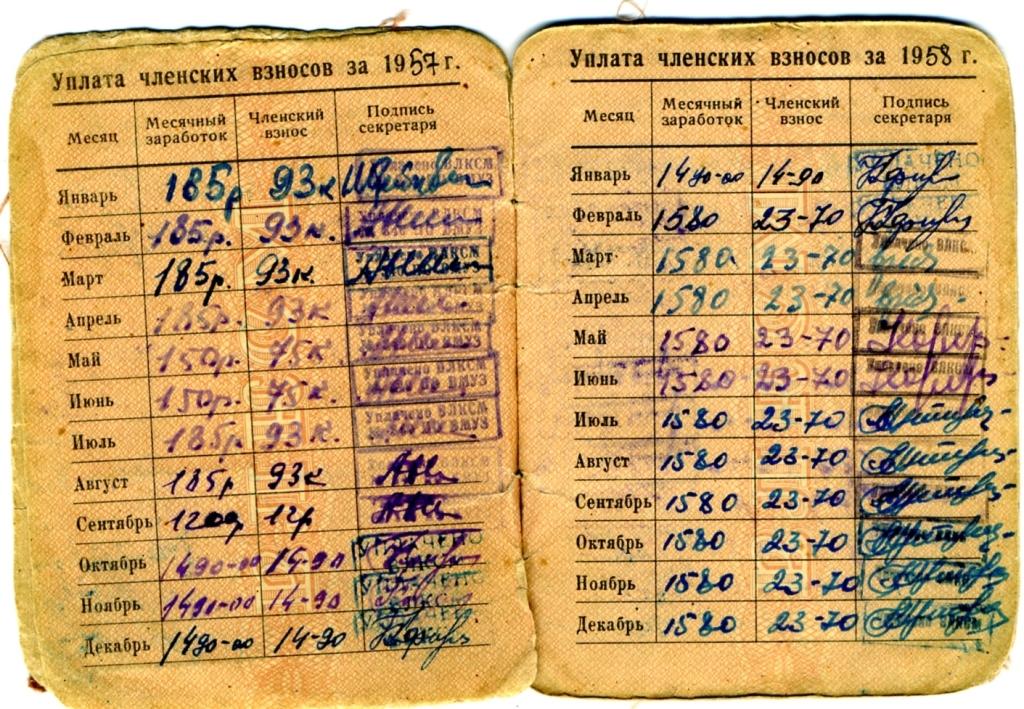 Уплата членских взносов за 1957 г.
Месяц Месячный заработок Членский взнос Подпись секретаря
Январь 185р 93к Уплачено ВЛКСМ
Февраль 185р. 93к.
Март 185р. 93к.
Апрель 185р. 93к
Май 150р. 75к. Уплачено ВЛКСМ
Июнь 150р. 75к. Уплачено ВЛКСМ ВМУЗ
Июль 185р. 93к. Уплачено ВЛКСМ ВМУЗ
Август 185р 93к
Сентябрь 1200р 12р
Октябрь 1490-00 14-90 УПЛАЧЕНО
Ноябрь 1490-00 14-90
Декабрь 1490-00 14-90
Уплата членских взносов за 1958 г.
Месяц Месячный заработок Членский взнос Подпись секретаря
Январь 1490-00 14-90 УПЛАЧЕНО
Февраль 1580 23-70
Март 1580 23-70 Уплачено ВЛКСМ
Апрель 1580 23-70
Май 1580 23-70
Июнь 1580 23-70 Уплачено ВЛКСМ
Июль 1580 23-70
Август 1580 23-70
Сентябрь 1580 23-70
Октябрь 1580 23-70
Ноябрь 1580 23-70
Декабрь 1580 23-70